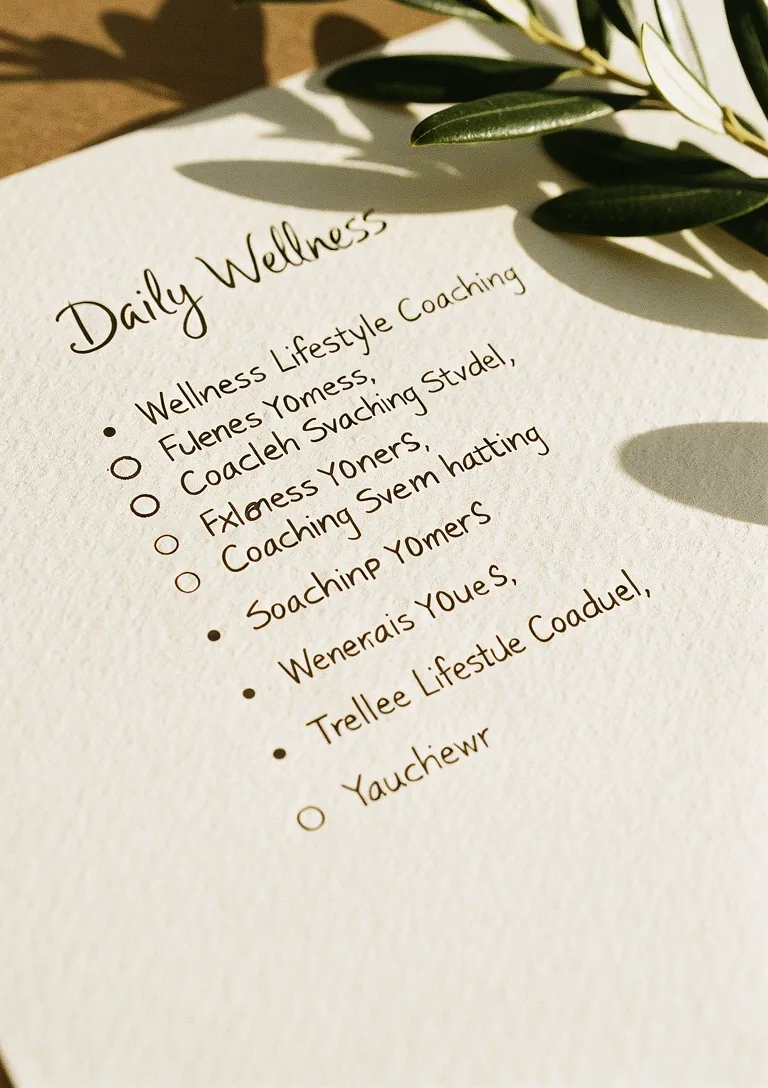 Daily Wellness
Wellness Lifestyle Coaching
Fulenes Yomess,
Coacleh Svaching Stvdel,
Fxleness Yoners,
Coaching Svem hatting
Soachinp Yomers
Wenerais Youes,
Trellee Lifestule Coaduel,
Yauchewr